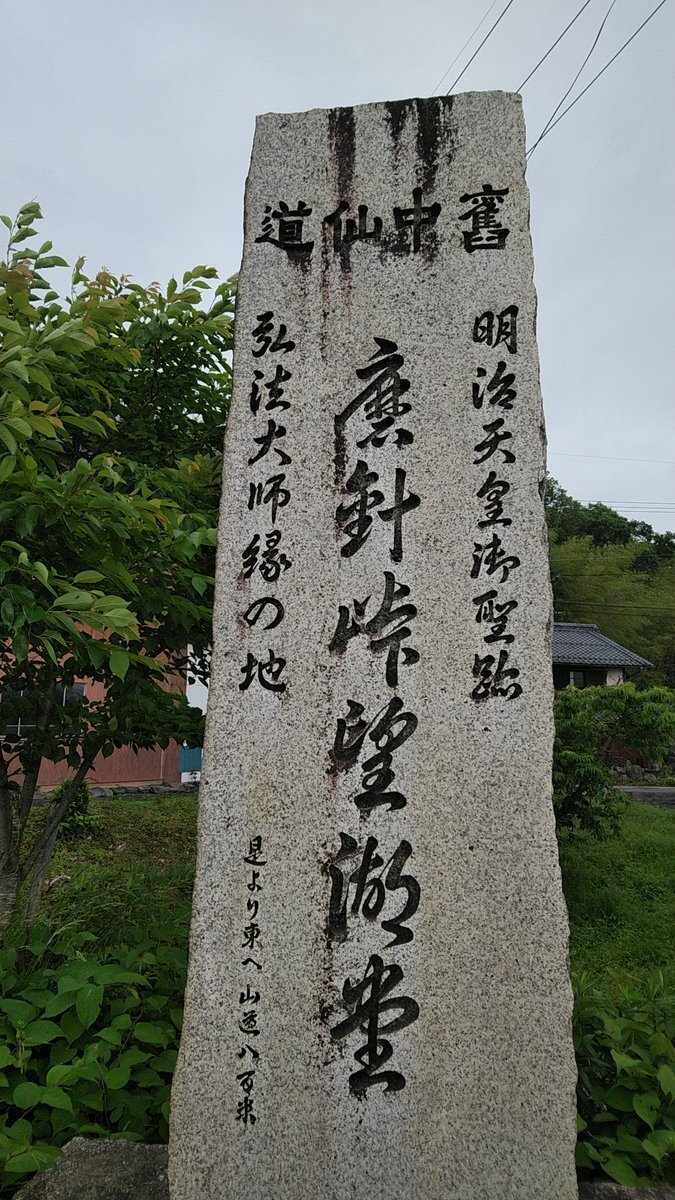 舊中仙道
明治天皇御聖跡
磨針峠望湖堂
弘法大師縁の地
是より東へ山道八百米